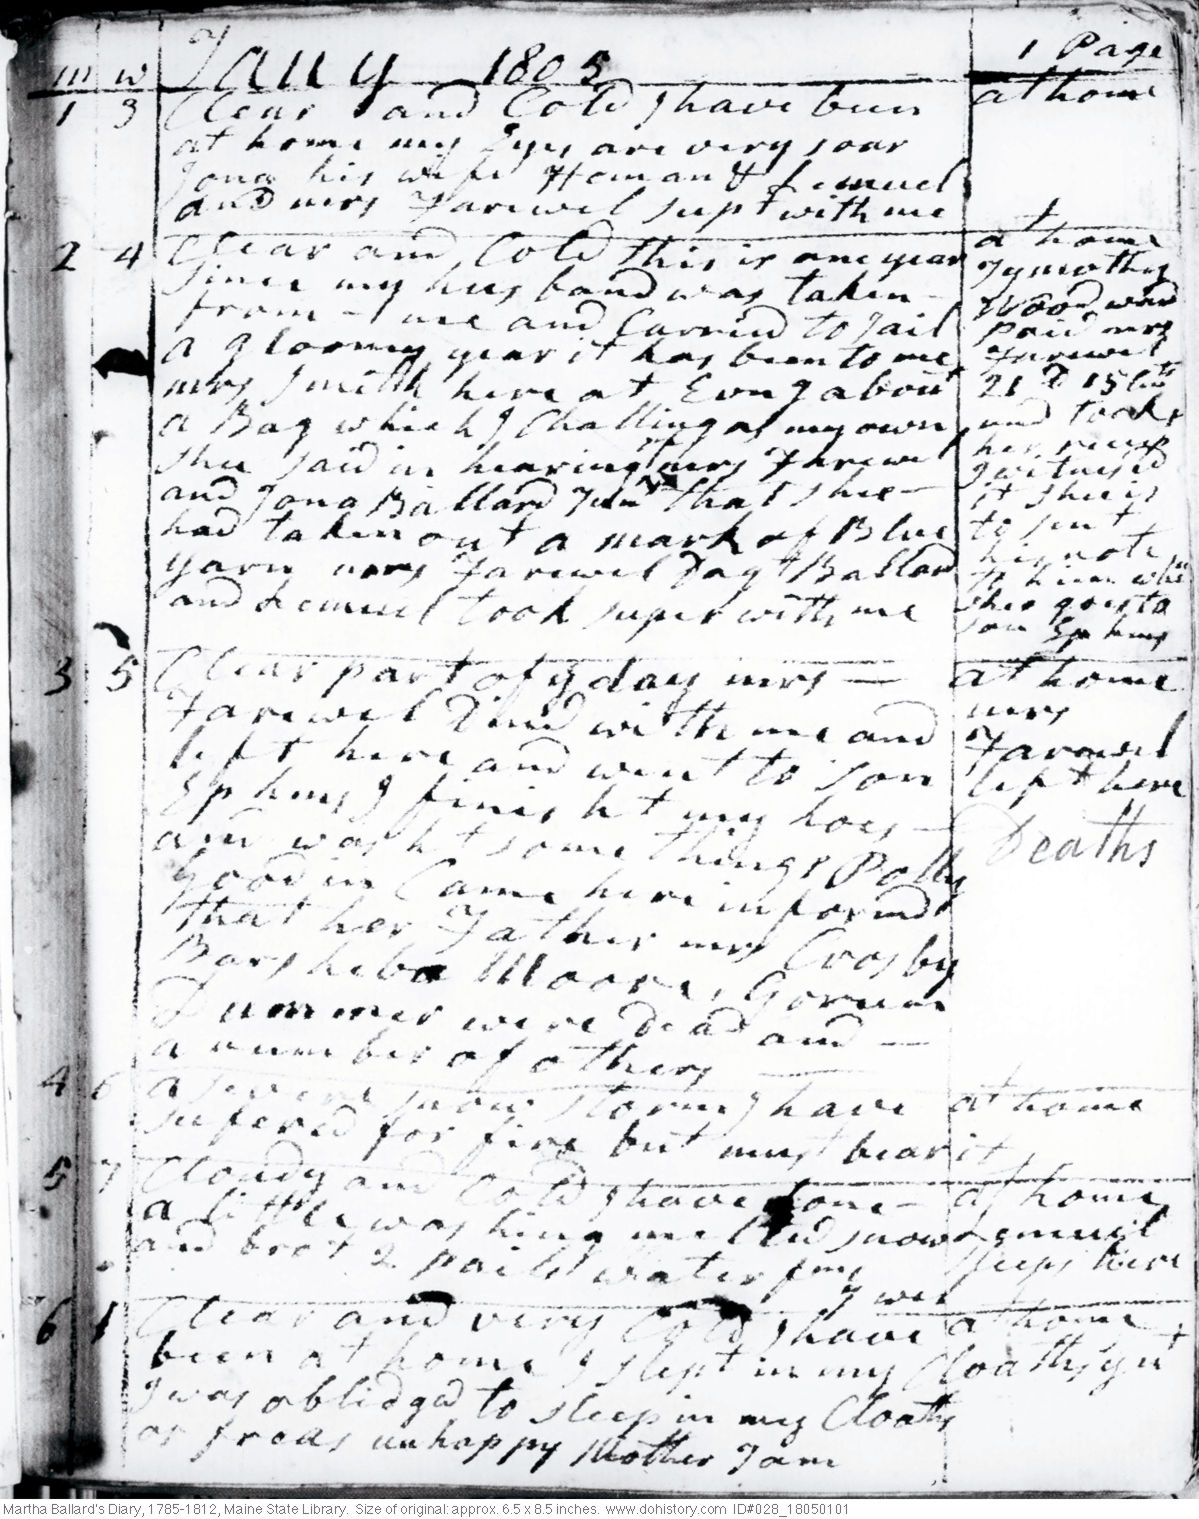 m w Jany 1805 1 Page
1 3 Clear and Cold I have been
at home my Eyes are very soar
Jona his wife Heman & Lemuel
and mrs Farewel slept with me
at home
2 4 Clear and Cold this is one year
since my husband was taken –
from – me and Carried to Jail
a gloomy year it has been to me
mrs Smith here at Evng about
a Bag which I Challing as my own
shee said in hearing mrs Farewel
and Jona Ballard Junr that shee –
had taken out a mark of Blue
yarn mrs Farewel Dagt Ballard
and Lemuel took super with me
at home
Tymothy
Woodward
paid mrs
Farewel
21 D 15 Cts
and took
her
I witnesd
it shee is
to sent
his note
to him when
shee goes to
son Ephms
3 5 Clear part of ye day mrs –
Farewel Dind with me and
left here and went to son
Ephms I finisht my hoes –
and washt some things Polly
Goodin Came here informd
that her Father mrs Crosby
Barsheba Moore, Gorum
Dummer were dead and –
a number of others
at home
mrs
Farewel
left here
Deaths
4 6 a severe snow storm I have
sufered for fire but must bear it
at home
5 7 Cloudy and Cold I have done –
a little washing melted snow
and brot 2 pails water from
well
at home
Lemuel
sleeps here
6 1 Clear and very Cold I have
been at home I slept in my Cloaths
I was oblidged to sleep in my Cloaths
or freas unhappy Mother I am
at home
Martha Ballard's Diary, 1785-1812, Maine State Library. Size of original: approx. 6.5 x 8.5 inches. www.dohistory.com ID#028_18050101